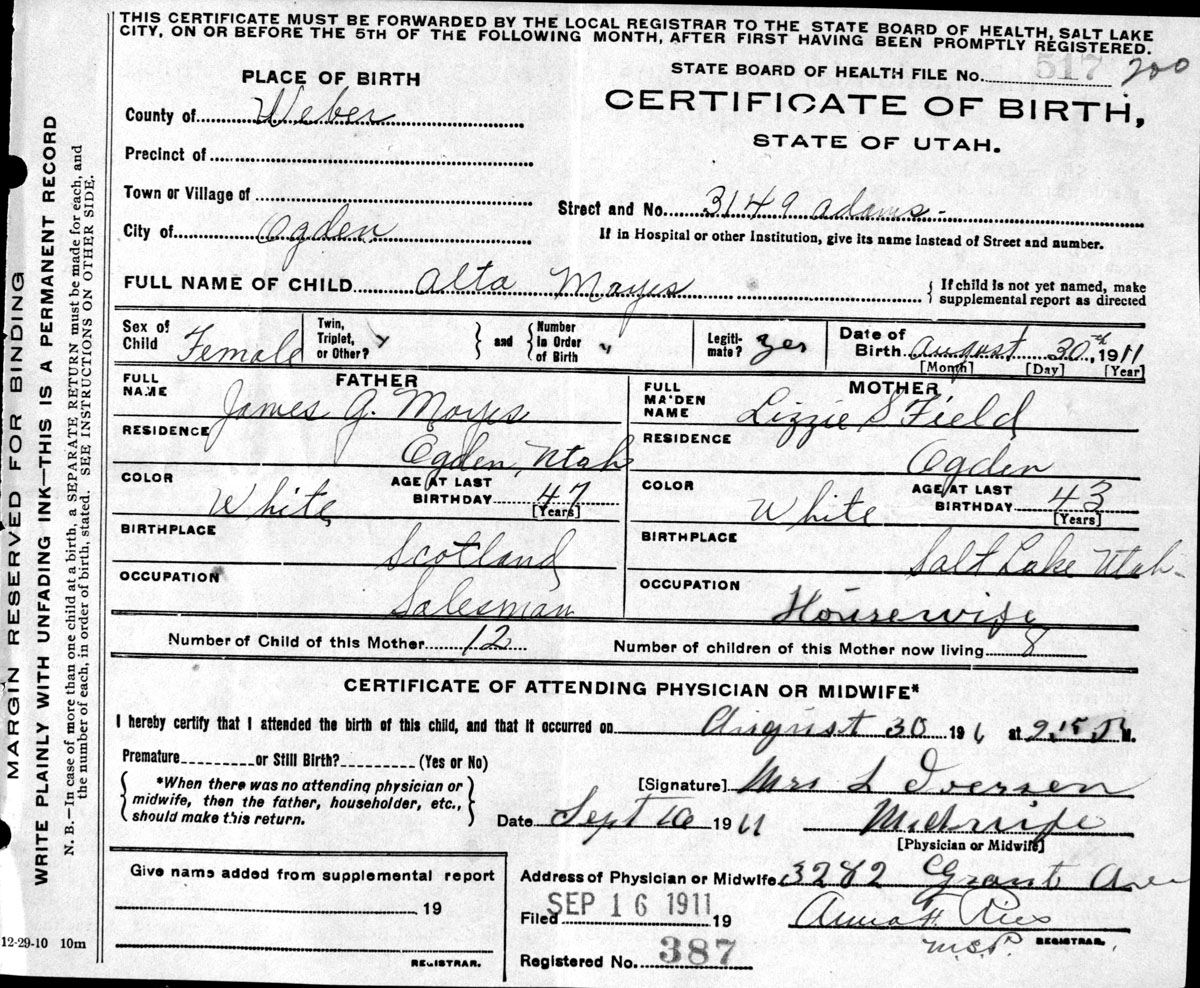 THIS CERTIFICATE MUST BE FORWARDED BY THE LOCAL REGISTRAR TO THE STATE BOARD OF HEALTH, SALT LAKE
CITY, ON OR BEFORE THE 5TH OF THE FOLLOWING MONTH, AFTER FIRST HAVING BEEN PROMPTLY REGISTERED.
STATE BOARD OF HEALTH FILE No. 517 200
PLACE OF BIRTH
CERTIFICATE OF BIRTH,
STATE OF UTAH.
County of Weber
Precinct of
Town or Village of
Street and No. 3149 Adams-
City of Ogden
If in Hospital or other Institution, give its name instead of Street and number.
FULL NAME OF CHILD Alta Moyes
{ If child is not yet named, make
supplemental report as directed
Sex of
Child Female
Twin,
Triplet,
or Other? }
and
{ Number
in Order
of Birth
Legiti-
mate? Yes
Date of
Birth August 30th, 1911
[Month] [Day] [Year]
FATHER
FULL
NAME James G. Moyes
MOTHER
FULL
MAIDEN
NAME Lizzie S Field
RESIDENCE Ogden, Utah
RESIDENCE Ogden
COLOR White
AGE AT LAST
BIRTHDAY 47
[Years]
COLOR White
AGE AT LAST
BIRTHDAY 43
[Years]
BIRTHPLACE Scotland
BIRTHPLACE Salt Lake Utah-
OCCUPATION Salesman
OCCUPATION Housewife
Number of Child of this Mother 12
Number of children of this Mother now living 8
CERTIFICATE OF ATTENDING PHYSICIAN OR MIDWIFE*
I hereby certify that I attended the birth of this child, and that it occurred on August 30 191 at 2,15 M.
Premature or Still Birth? (Yes or No)
{ *When there was no attending physician or
midwife, then the father, householder, etc.,
should make this return. }
[Signature] Mrs L Iversen
Date Sept 16 1911 Midwife
[Physician or Midwife]
Give name added from supplemental report
19
REGISTRAR.
Address of Physician or Midwife 3282 Grant Ave
Filed SEP 16 1911 19 Anna H. Ries
M.S.P. REGISTRAR.
Registered No. 387
12-29-10 10m
MARGIN RESERVED FOR BINDING
WRITE PLAINLY WITH UNFADING INK—THIS IS A PERMANENT RECORD
N. B.—In case of more than one child at a birth, a SEPARATE RETURN must be made for each, and
the number of each, in order of birth, stated. SEE INSTRUCTIONS ON OTHER SIDE.